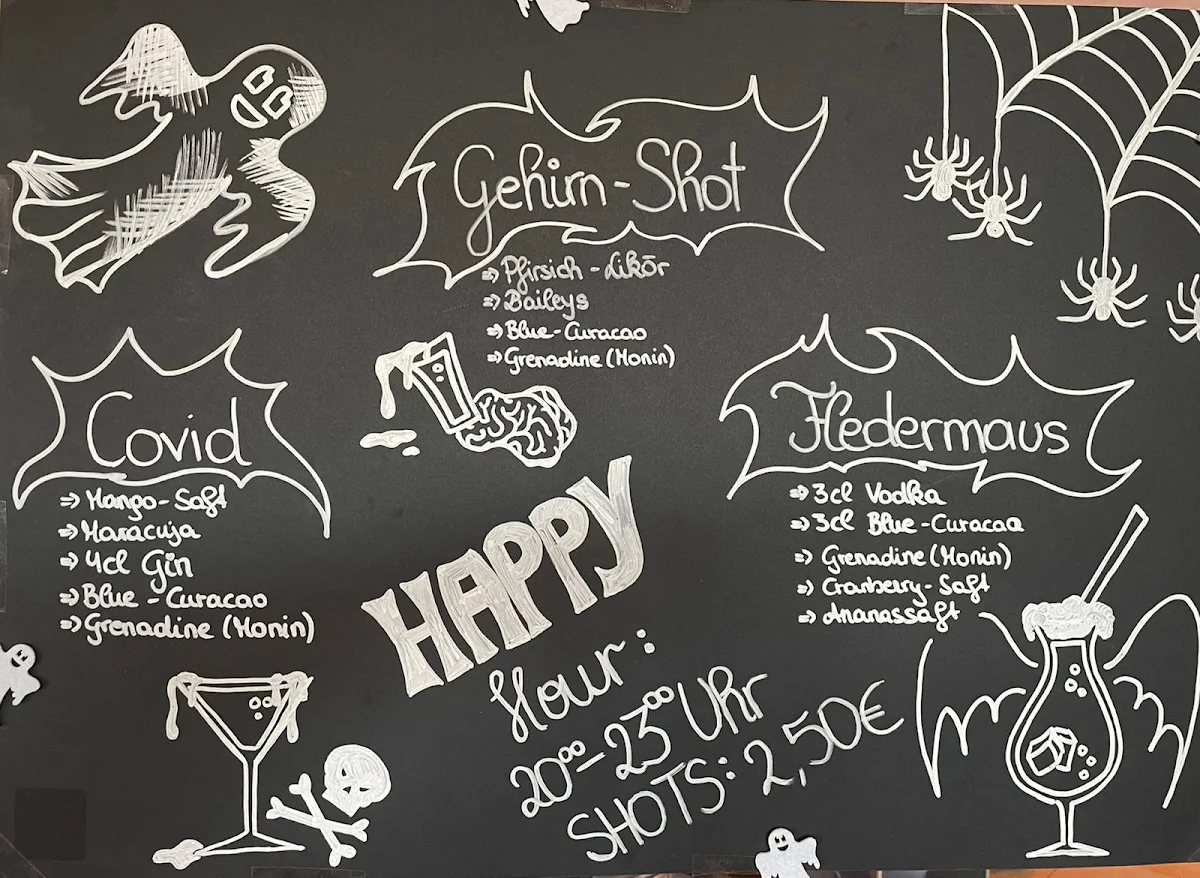 Gehirn-Shot
⇒ Pfirsich-Likör
⇒ Baileys
⇒ Blue-Curacao
⇒ Grenadine (Monin)
Covid
⇒ Mango-Saft
⇒ Maracuja
⇒ 4cl Gin
⇒ Blue-Curacao
⇒ Grenadine (Monin)
Fledermaus
⇒ 3cl Vodka
⇒ 3cl Blue-Curacao
⇒ Grenadine (Monin)
⇒ Cranberry-Saft
⇒ Ananassaft
HAPPY
Hour:
20⁰⁰-23⁰⁰ Uhr
SHOTS: 2,50€